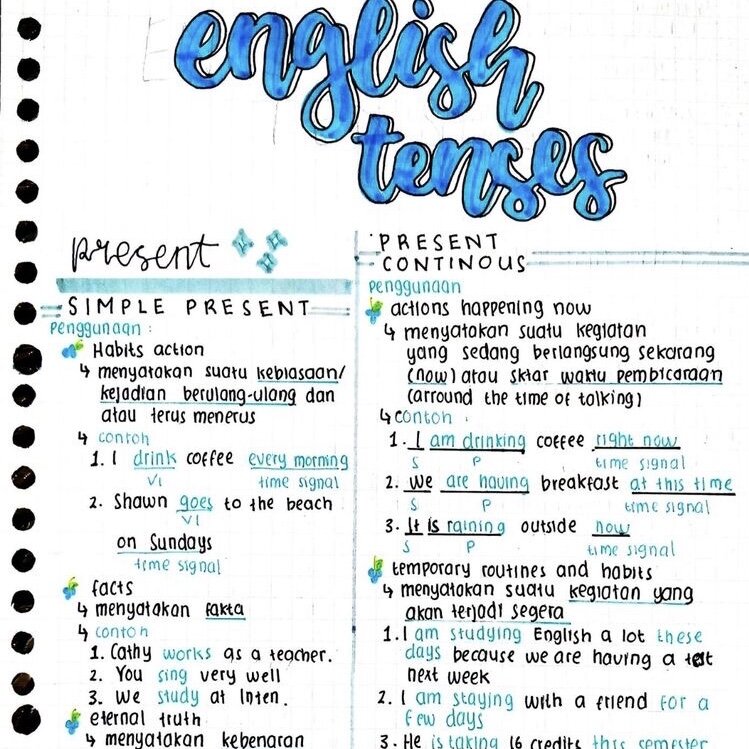 english
tenses
present
SIMPLE PRESENT
penggunaan :
Habits action
↳ menyatakan suatu kebiasaan/
kejadian berulang-ulang dan
atau terus menerus
↳ contoh
1. I drink coffee every morning
V1 time signal
2. Shawn goes to the beach
V1
on Sundays
time signal
facts
↳ menyatakan fakta
↳ contoh
1. Cathy works as a teacher.
2. You sing very well
3. We study at Inten.
eternal truth
↳ menyatakan kebenaran
PRESENT
CONTINOUS
penggunaan
actions happening now
↳ menyatakan suatu kegiatan
yang sedang berlangsung sekarang
(now) atau sktar waktu pembicaraan
(arround the time of talking)
↳ contoh :
1. I am drinking coffee right now
S P time signal
2. We are having breakfast at this time
S P time signal
3. It is raining outside now
S P time signal
temporary routines and habits
↳ menyatakan suatu kegiatan yang
akan terjadi segera
1. I am studying English a lot these
days because we are having a test
next week
2. I am staying with a friend for a
few days
3. He is taking 16 credits this semester